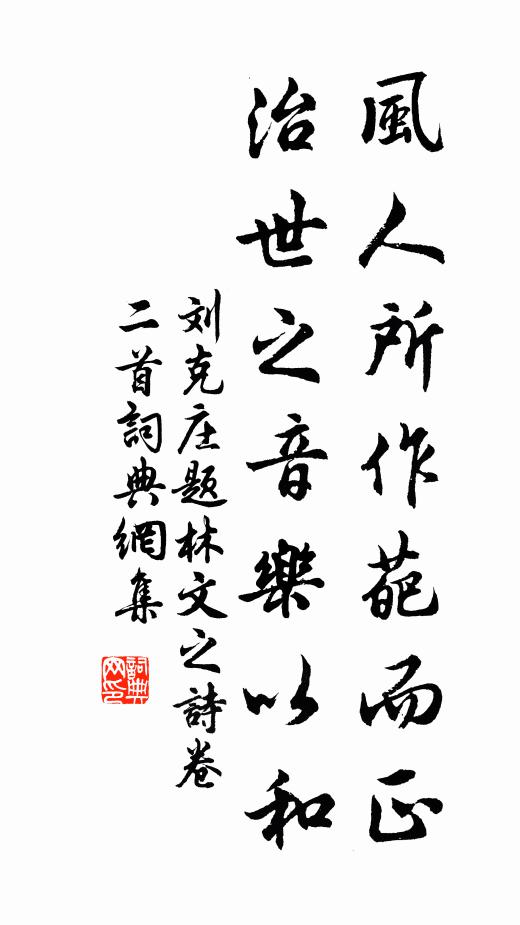 風人所作葩而正
治世之音樂以和
刘克庄题林文之詩卷
二首詞典網集
詞典
网印